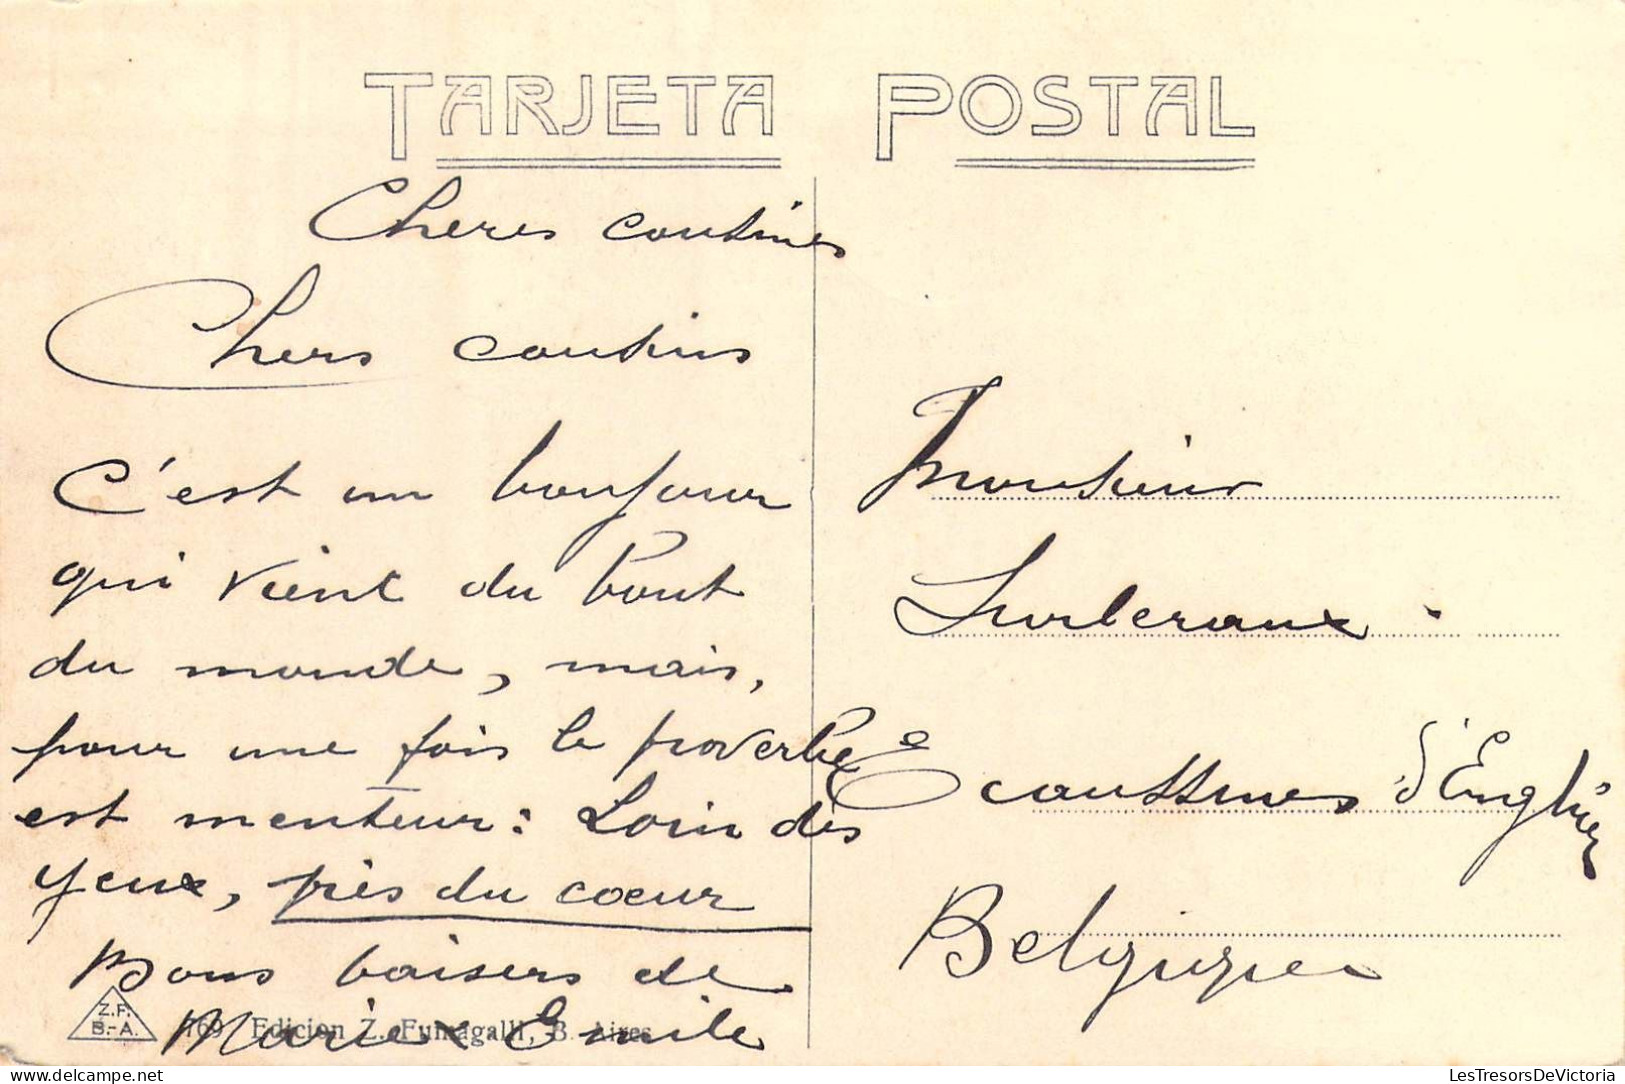 TARJETA POSTAL
Cheres cousines
Chers cousins
C'est un bonjour
qui vient du bout
du monde, mais,
pour une fois le proverbe
est menteur : Loin des
yeux, près du coeur
Bons baisers de
Marie x Emile
Monsieur
Surleraux .
Ecaussines d'Enghien
Belgique
Z.F.
B.-A.
769 Edicion Z. Fumagalli, B. Aires
LesTresorsDeVictoria
LesTresorsDeVictoria.com